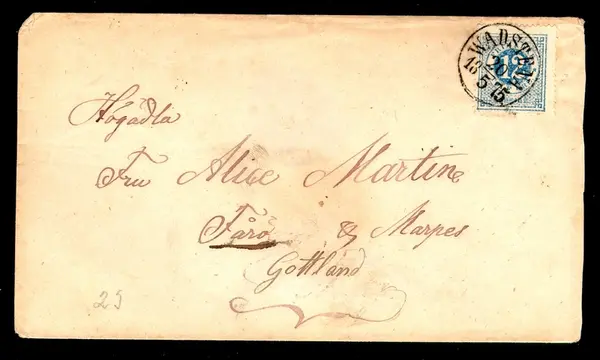 WADSTENA
20
13 5 75
12
Högädla
Fru Alice Martin
Fårö & Marpes
Gottland
25